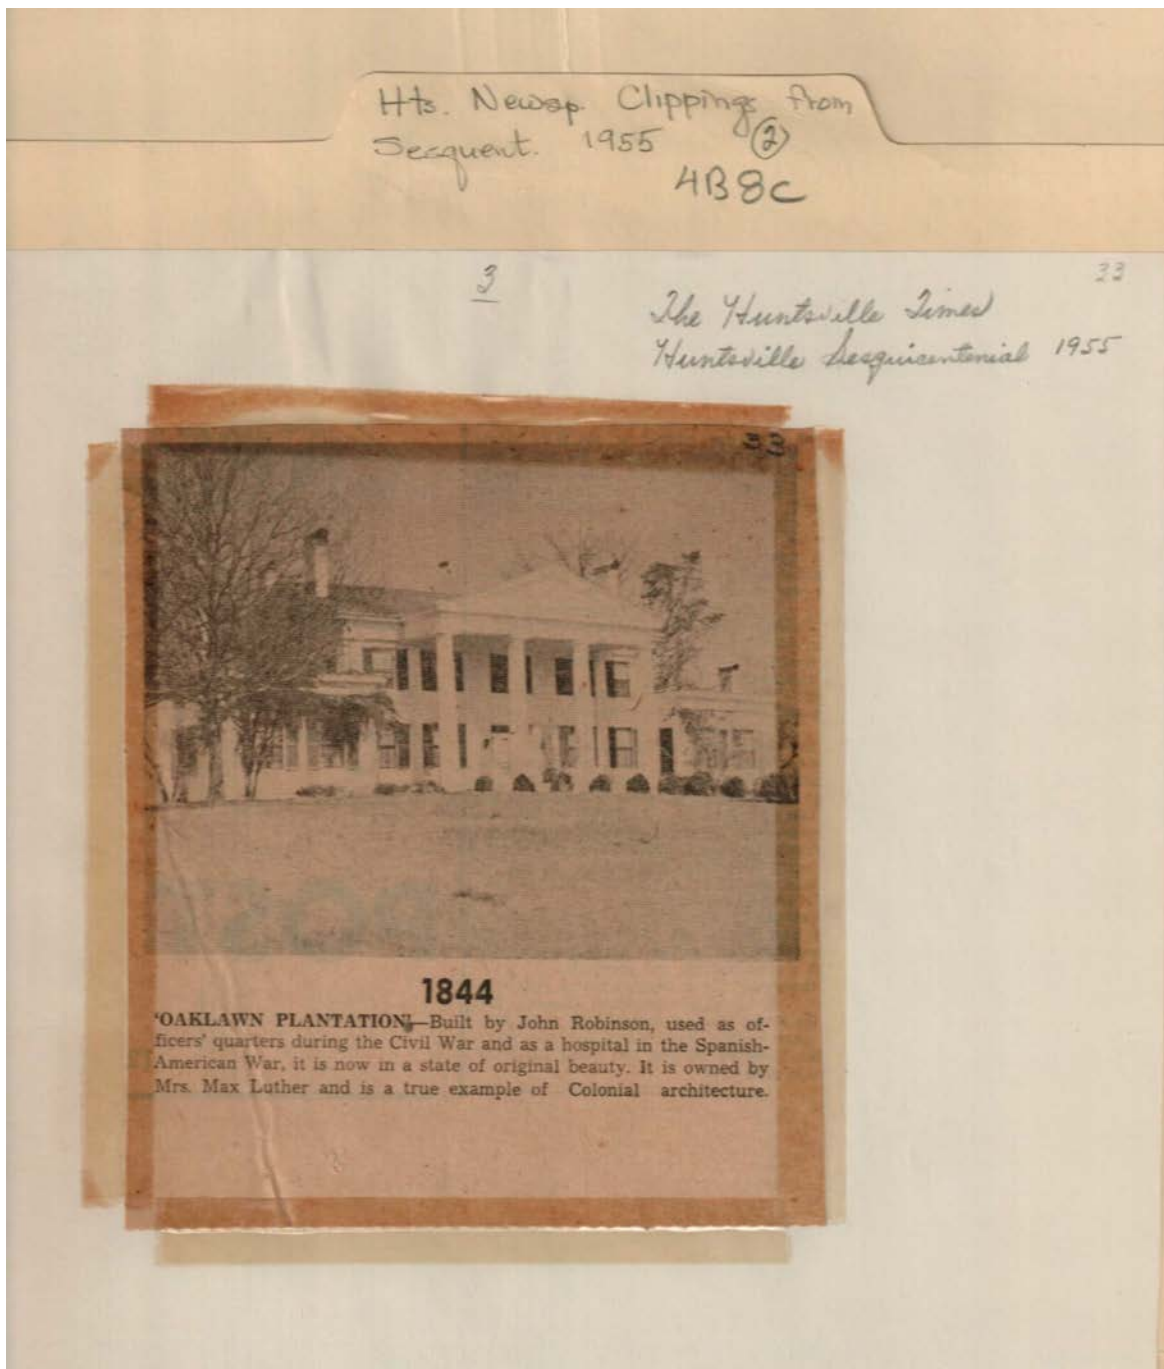 Hts. Newsp. Clippings from
Sesquent. 1955 2
4B8C
3
33
The Huntsville Times
Huntsville Sesquicentenial 1955
33
1844
'OAKLAWN PLANTATION'—Built by John Robinson, used as of-
ficers' quarters during the Civil War and as a hospital in the Spanish-
American War, it is now in a state of original beauty. It is owned by
Mrs. Max Luther and is a true example of Colonial architecture.